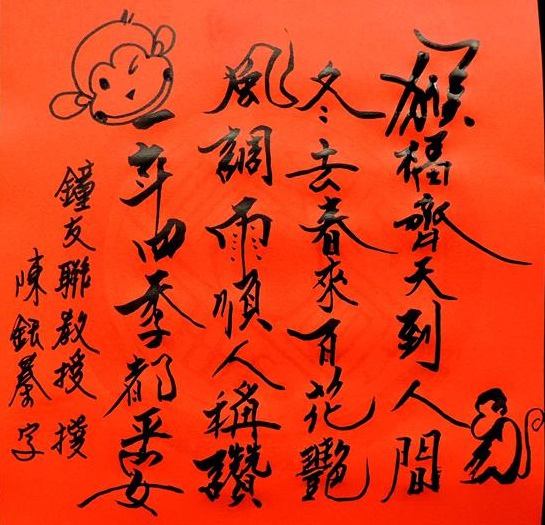 猴福齊天到人間
冬去春來百花艷
風調雨順人稱讚
一年四季都平安
鐘友聯教授 撰
陳銀字